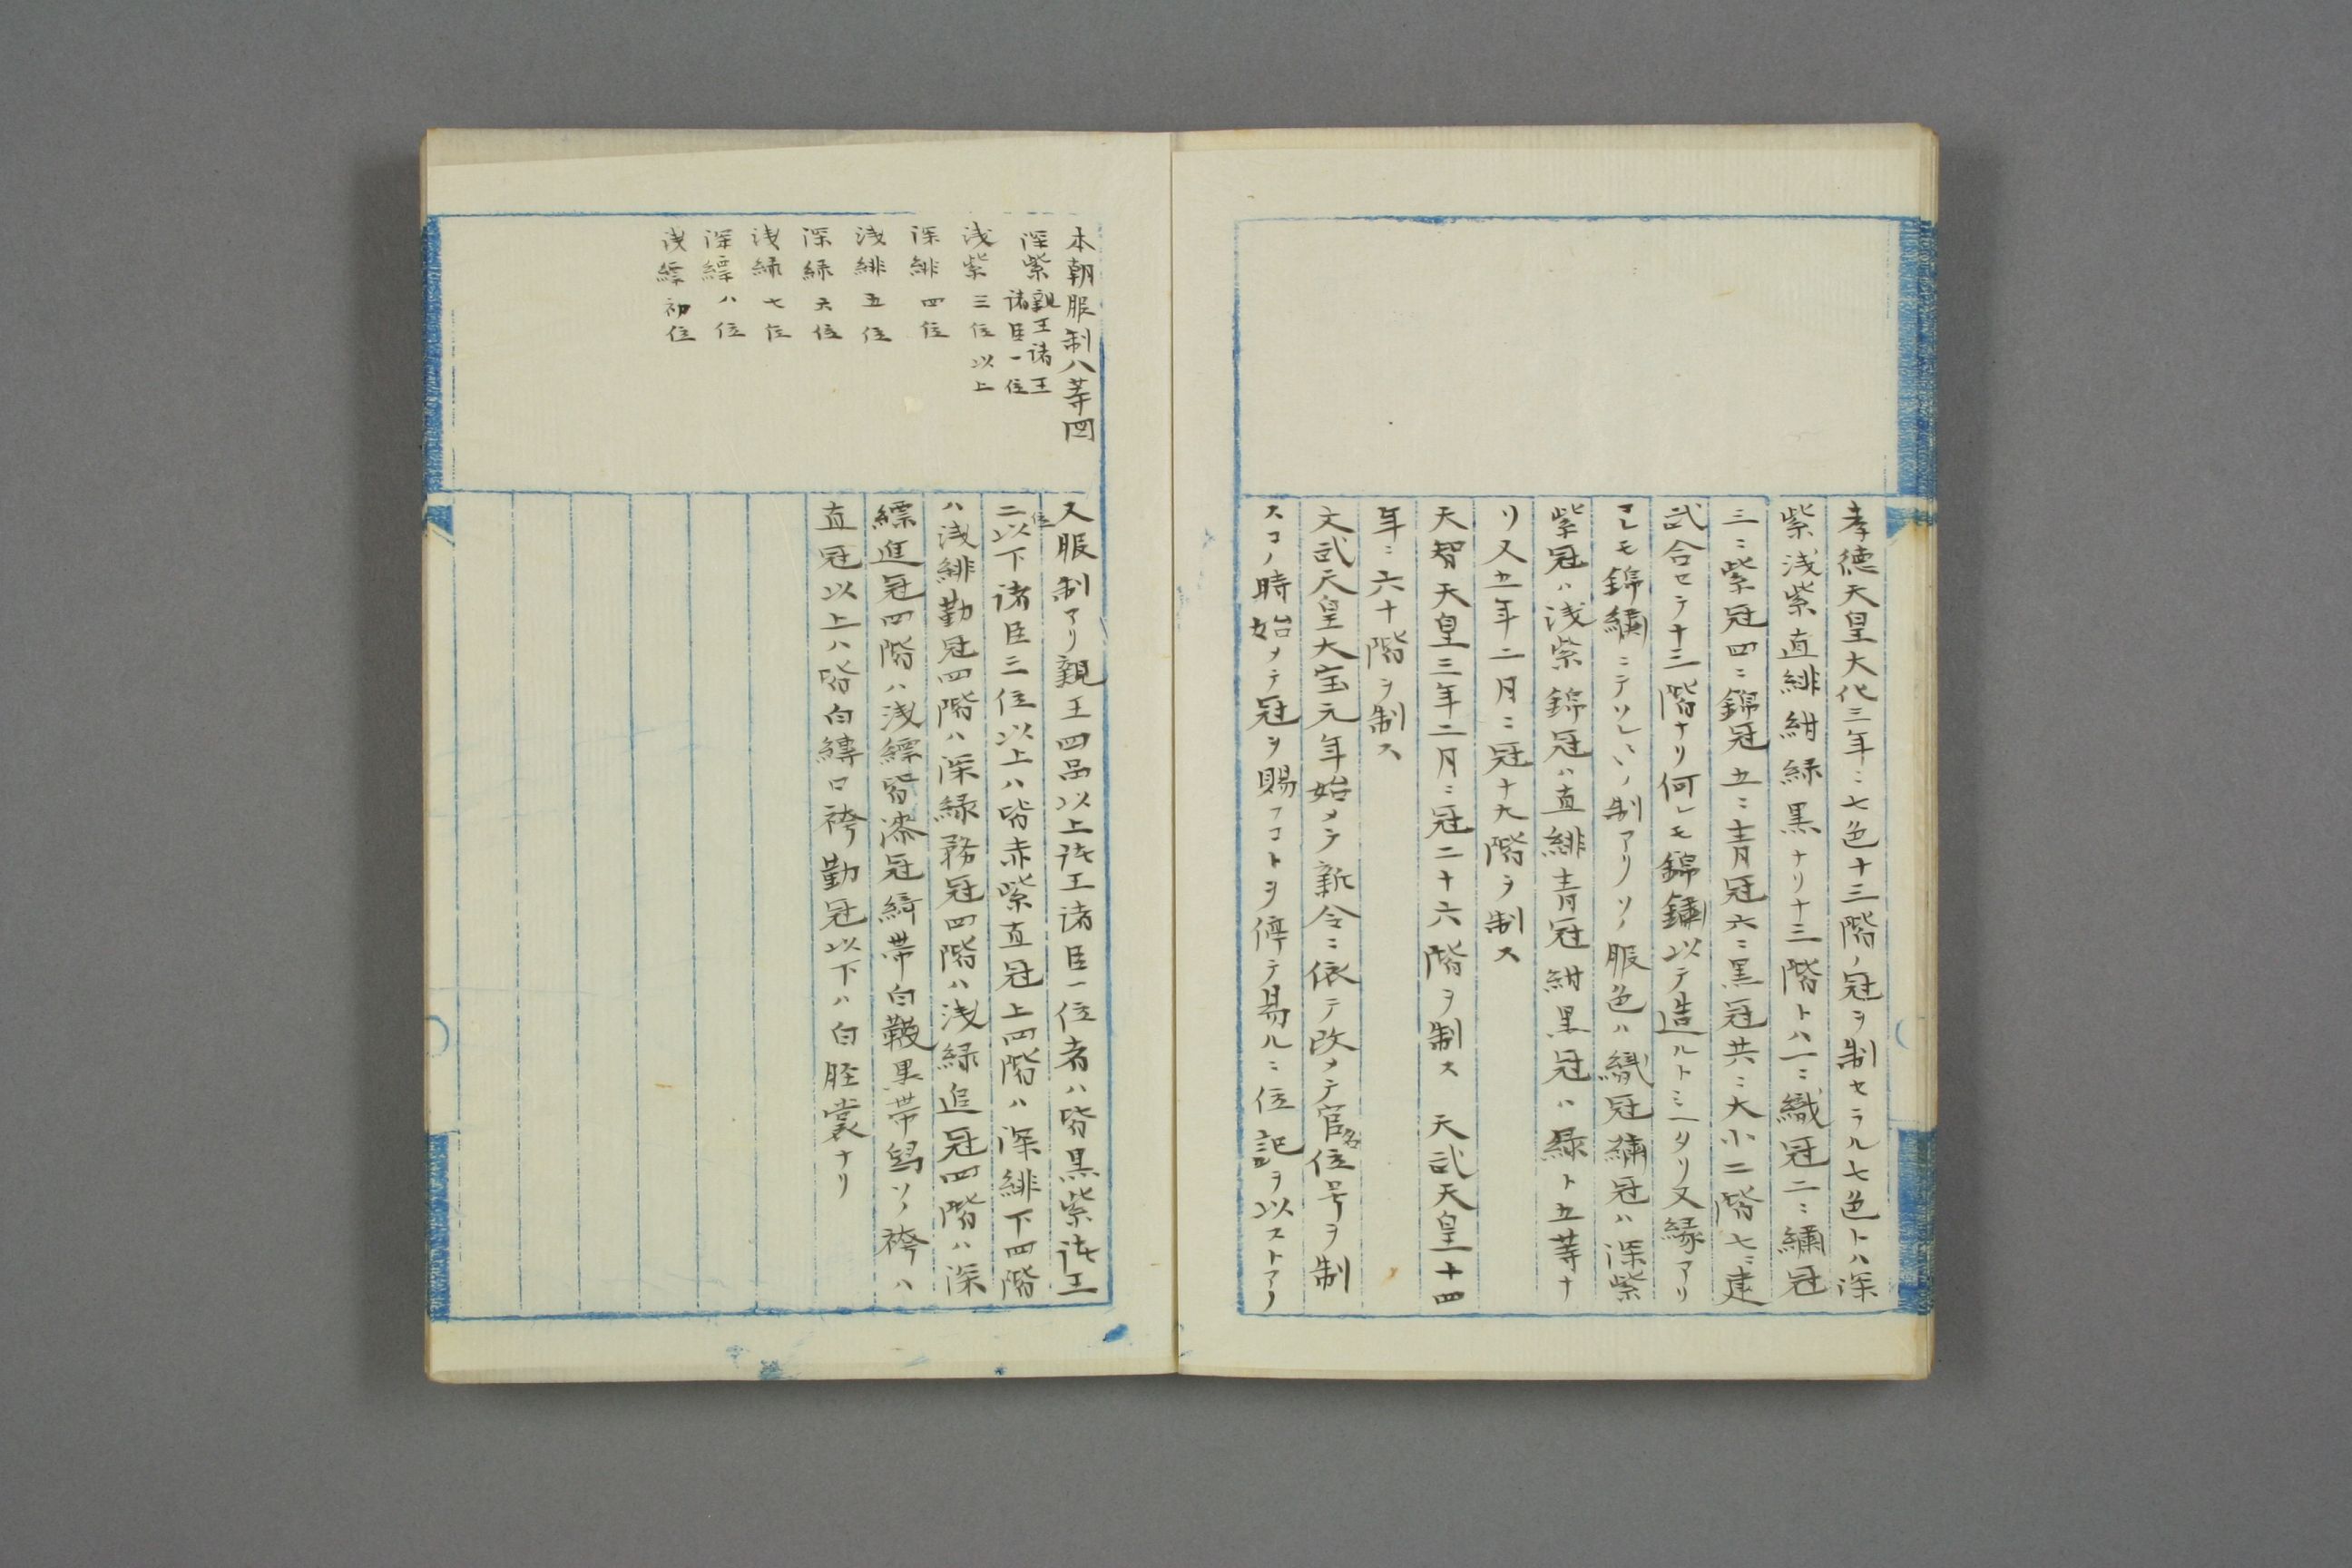 孝徳天皇大化三年ニ七色十三階ノ冠ヲ制セラル七色トハ深
紫浅紫直緋紺緑黒ナリ十三階トハ一ニ織冠二ニ繍冠
三ニ紫冠四ニ錦冠五ニ青冠六ニ黒冠共ニ大小二階七ニ建
武合セテ十三階ナリ何レモ錦繍以テ造ルトミヘタリ又縁アリ
コレモ錦繍ニテソレ〻ノ制アリソノ服色ハ織冠繍冠ハ深紫
紫冠ハ浅紫錦冠ハ直緋青冠紺黒冠ハ緑ト五等ナ
リ又五年二月ニ冠十九階ヲ制ス
天智天皇三年二月ニ冠二十六階ヲ制ス 天武天皇十四
年ニ六十階ヲ制ス
文武天皇大宝元年始メテ新令ニ依テ改メテ官名位号ヲ制
スコノ時始メテ冠ヲ賜フコトヲ停テ易ルニ位記ヲ以ストアリ
本朝服制八等図
深紫 親王諸王 諸臣一位
浅紫 三位以上
深緋 四位
浅緋 五位
深緑 六位
浅緑 七位
深縹 八位
浅縹 初位
又服制アリ親王四品以上諸王諸臣一位者ハ皆黒紫諸王
二位以下諸臣三位以上ハ皆赤紫直冠上四階ハ深緋下四階
ハ浅緋勤冠四階ハ深緑務冠四階ハ浅緑追冠四階ハ深
縹進冠四階ハ浅縹皆漆冠綺帯白襪黒帯舃ソノ袴ハ
直冠以上ハ皆白縛口袴勤冠以下ハ白脛裳ナリ